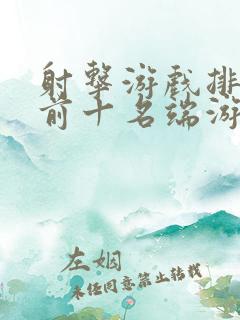 射击游戏排
前十名端游
左姻
未经同意禁止转载